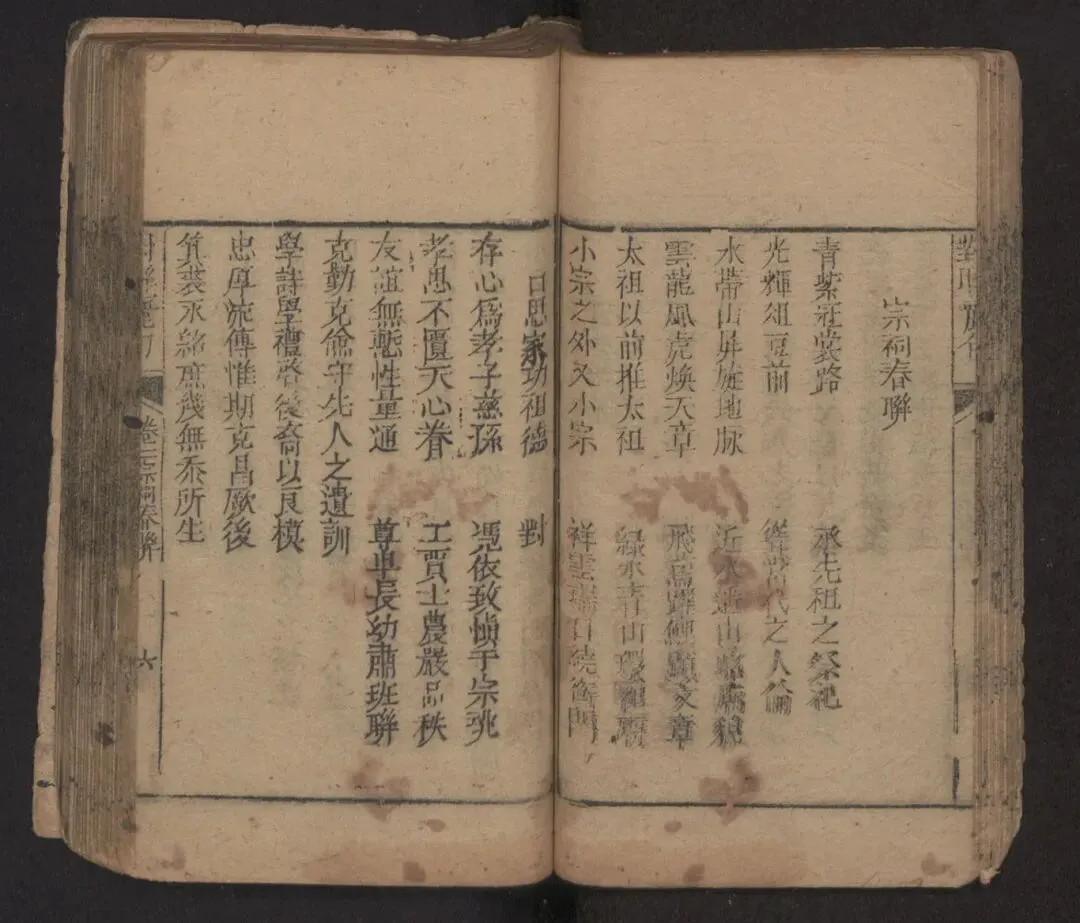 宗祠春聯
青紫冠裳路　承先祖之祭祀
光輝俎豆前　代之人倫
水帶山屏旋地脉　近水　山　廟貌
雲龍風虎煥天章　飛鳶躍　顯文章
太祖以前推太祖　綠水青山環
小宗之外又小宗　祥雲瑞日繞
日思家功祖德　對
存心為孝子慈孫　憑依致慎于宗祧
孝思不匱天心眷　工賈士農嚴品秩
友誼無慙性量通　尊卑長幼肅班聯
克勤克儉守先人之遺訓
學詩學禮啓後裔以良模
忠厚流傳惟期克昌厥後
箕裘丕紹庶幾無忝所生
卷 宗祠春聯
六